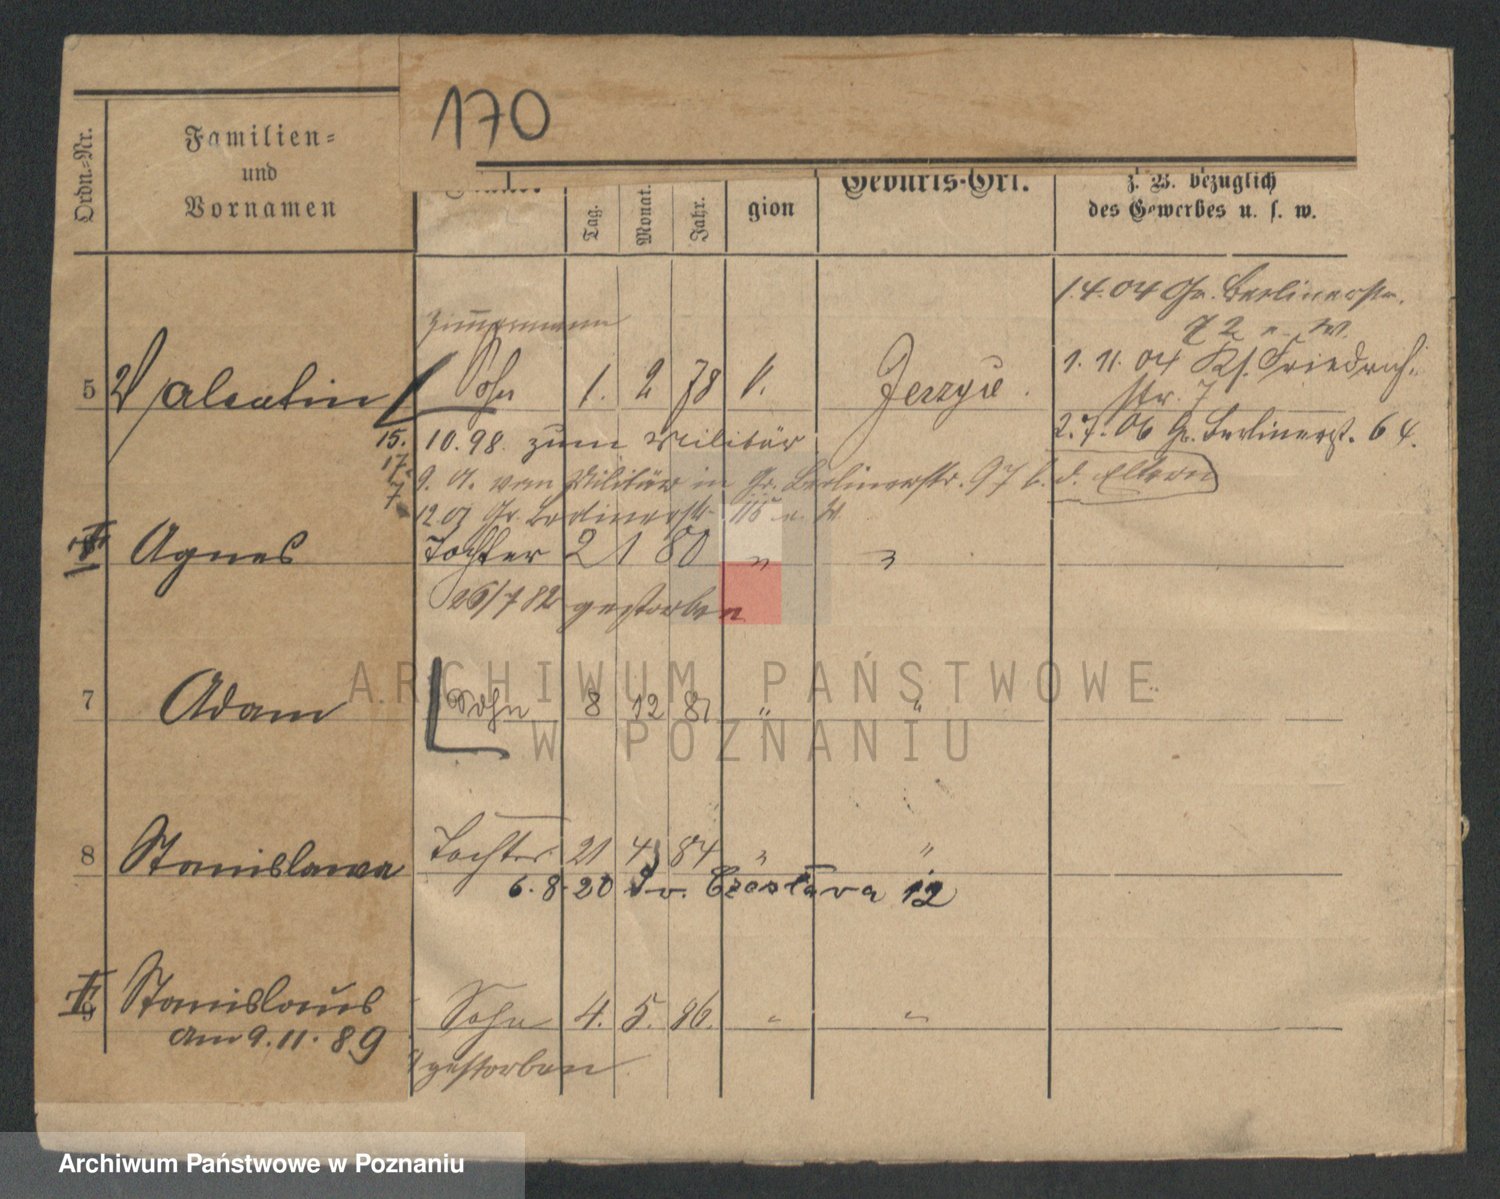 170
Ordn.-Nr.
Familien-
und
Vornamen
Tag.
Monat.
Jahr.
gion
Geburts-Ort.
z. B. bezüglich
des Gewerbes u. s. w.
1.4.04 Gr. Berlinerstr.
72
Zimmermann
5 Valentin Sohn 1. 2 78 k. Jerzyce.
1. 11. 04 Ks. Friedrich
str. 7
2.7.06 Gr. Berlinerst. 64.
15. 10. 98. zum Militär
17. 9. vom Militär in Gr. Berlinerstr. 97 b. d. Eltern
7 12 07 Gr. Berlinerstr.
Agnes Tochter 2 1 80 " "
26/7 82 gestorben
7 Adam Sohn 8 12 81 " "
8 Stanislawa Tochter 21 4 84 " "
6.8.20 Czesława 12
9 Stanislaus Sohn 4. 5. 86. " "
am 9.11.89 gestorben
ARCHIWUM PAŃSTWOWE
W POZNANIU
Archiwum Państwowe w Poznaniu